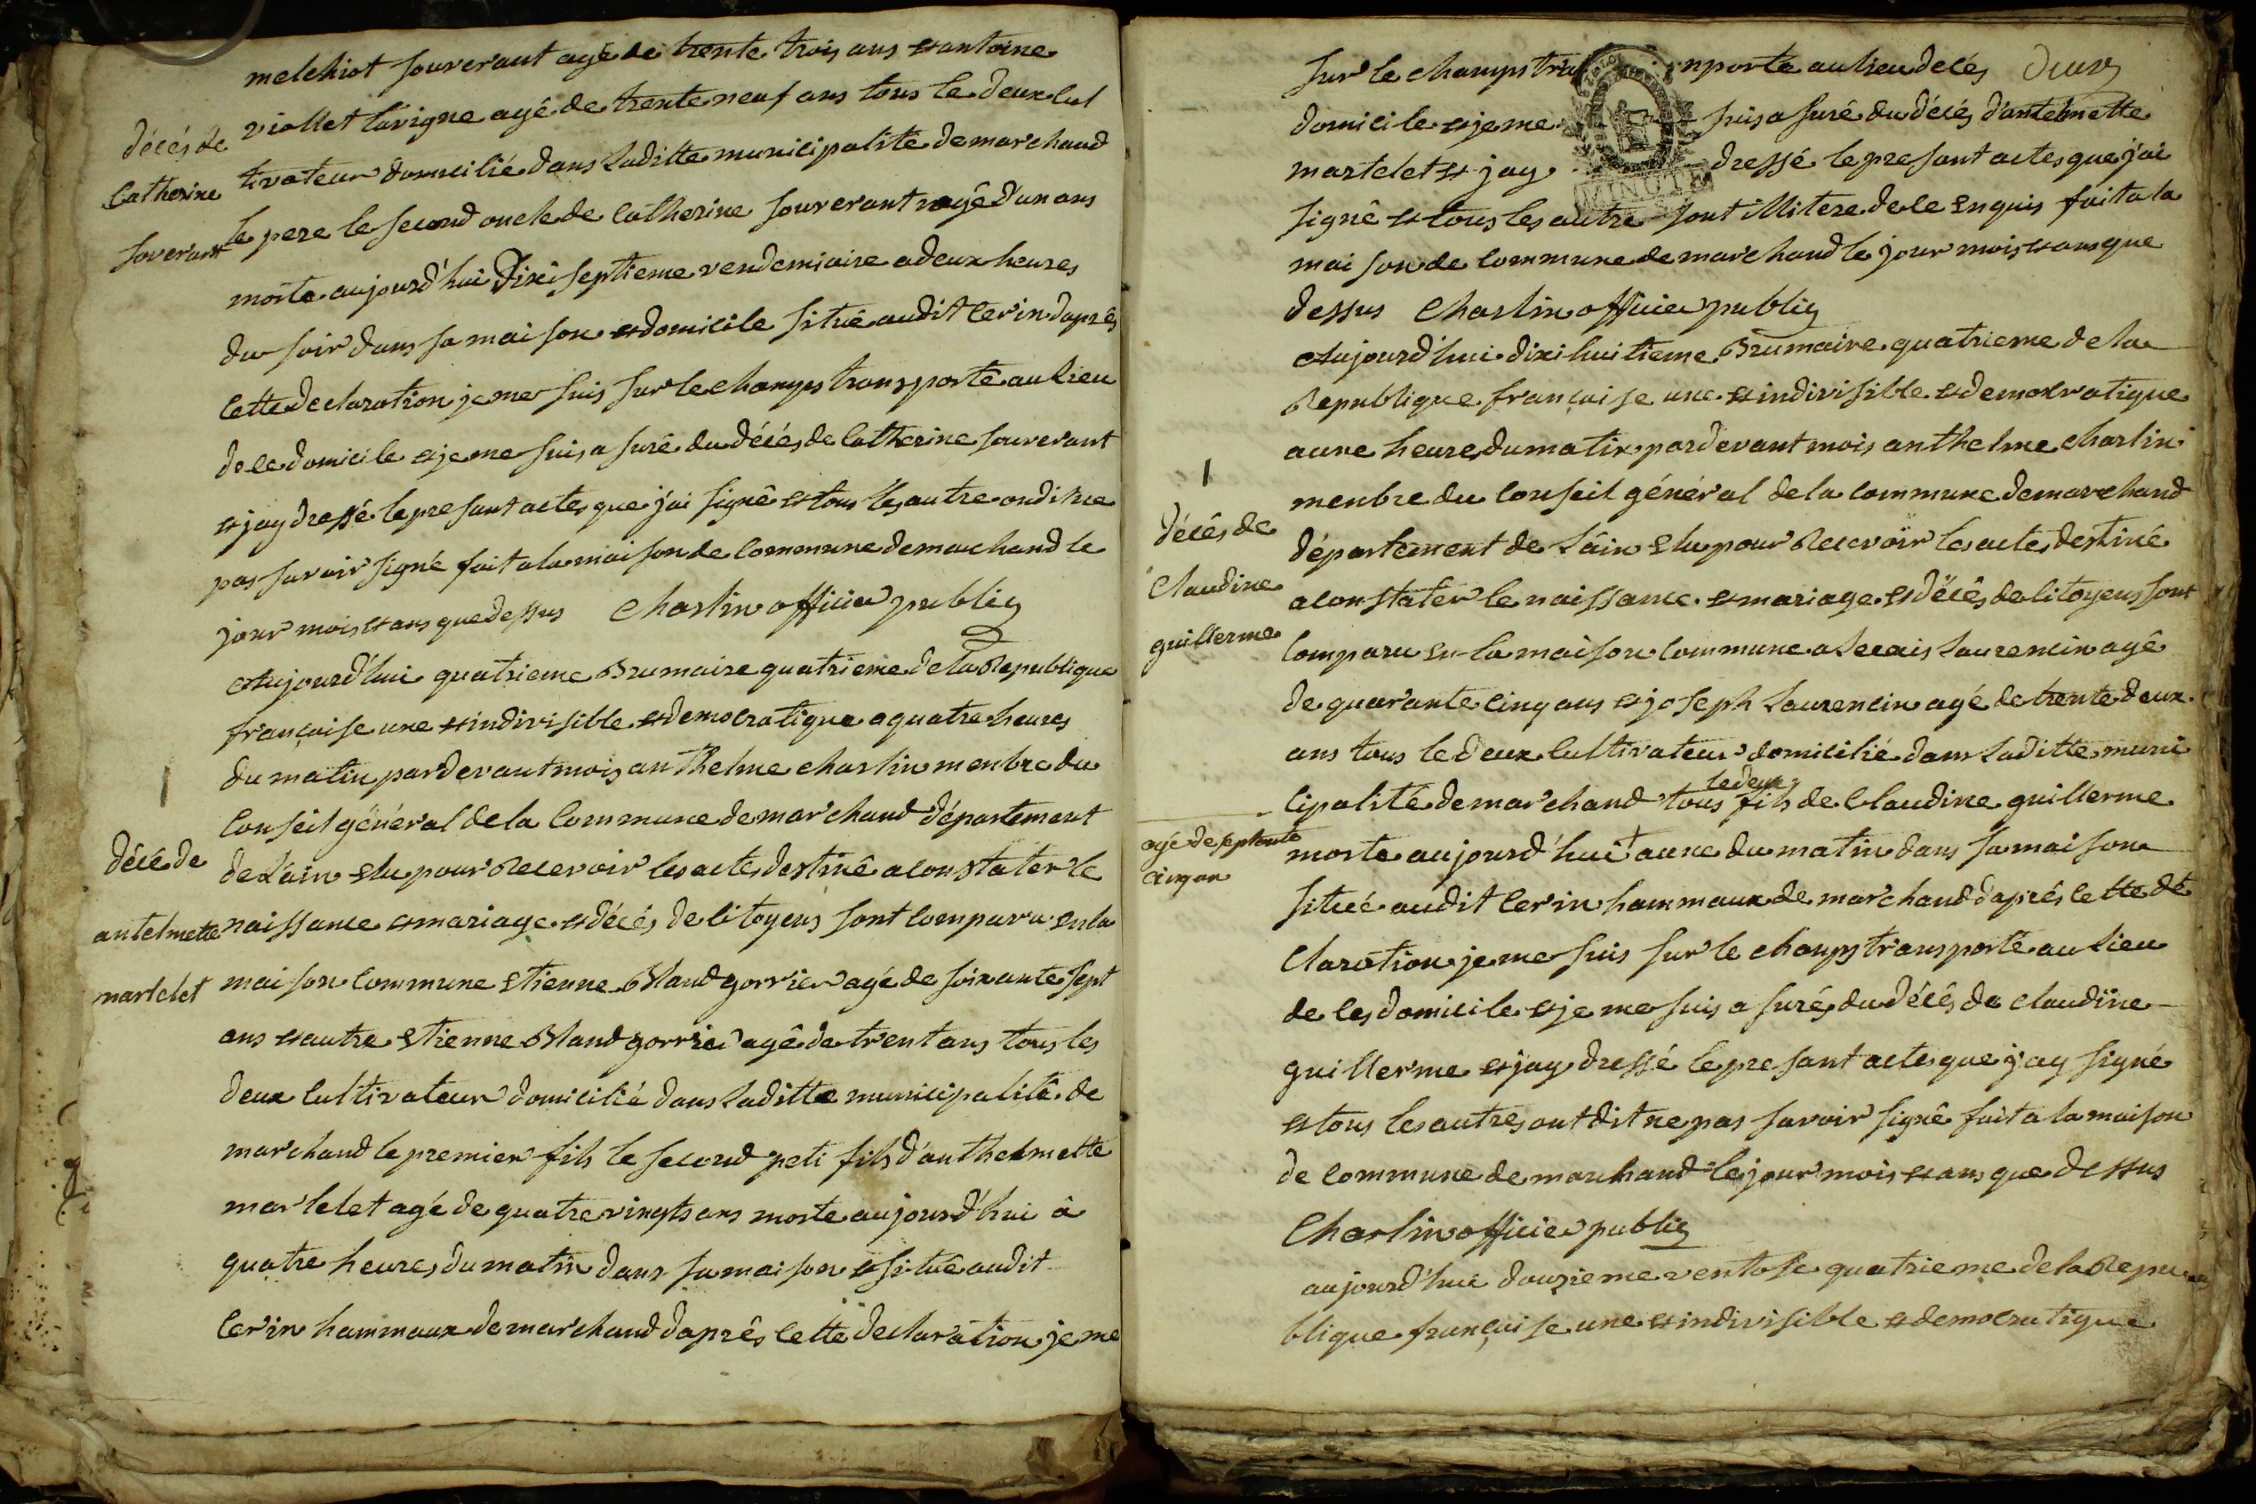 melchiot souverant agé de trente trois ans et antoine
viollet lavigne agé de trente neuf ans tous le deux cul
décés de
Catherine
soverant
tivateur domicilié dans laditte municipalité de marchand
le pere le second oncle de Catherine souverant agé d'un ans
morte aujourd'hui dixi septieme vendemiaire a deux heures
du soir dans sa maison et domicile situé audit Cerin d'aprés
cette declaration je me suis sur le champs transporté au lieu
de ce domicile et je me suis a suré du décés de Catherine souverant
et jay dressé le presant actes que j'ai signê et tous les autre ondit ne
pas savoir signé fait a la maison de Commune de marchand le
jour mois et ans que dessus Charlin officier public
Aujourd'hui quatrieme Brumaire quatrieme de la Republique
française une et indivisible et democratique a quatre heures
du matin pardevant mois anthelme charlin menbre du
Conseil général de la Commune de marchand département
décé de
antelmette
martelet
de L'ain elu pour Recevoir les actes destiné a constater le
naissance et mariage et décés de citoyens sont comparu en la
maison commune etienne Bland gorrier agé de soixante sept
ans et autre etienne Bland gorrier agé de trent ans tous les
deux cultivateur domicilié dans laditte municipalité de
marchand le premier fils le second peti fils d'anthelmette
martelet agé de quatre vingts ans morte aujourd'hui à
quatre heures du matin dans sa maison et situé audit
Cerin hammaux de marchand d'aprês cette declaration je me
sur le champs tra nsporté au lieu de cés
domicile et je me suis a suré du décés d'antelmette
martelet et jay dressé le presant actes que j'ai
MINUTE
signé et tous les autre sont illitere de ce enquis fait a la
maison de commune de marchand le jour mois et ans que
dessus Charlin officier public
Aujourd'hui dixi huitieme Brumaire quatrieme de la
Republique française une et indivisible et democratique
a une heure du matin pardevant mois anthelme charlin
menbre du conseil général de la commune de marchand
décés de
Claudine
guillerme
département de L'ain elu pour Recevoir les actes destiné
a constater le naissance et mariage et décés de citoyens sont
comparu en la maison commune alexis laurencin agé
de quarante cinq ans et joseph Laurencin agé de trente deux
ans tous le deux cultivateur domicilié dans laditte muni
le deux
cipalité de marchand tous fils de Claudine guillerme
agé de septente
cinq an
morte aujourd'hui a une du matin dans sa maison
située audit Cerin hammaux de marchand d'aprés cette dé
claration je me suis sur le champs transporté au lieu
de ces domicile et je me suis a suré du décés de claudine
guillerme et jay dressé le presant actes que j'ay signé
et tous les autres ont dit ne pas savoir signé fait a la maison
de commune de marchand le jour mois et ans que dessus
Charlin officier public
aujourd'hui douzieme ventose quatrieme de la Repu
blique française une et indivisible et democratique